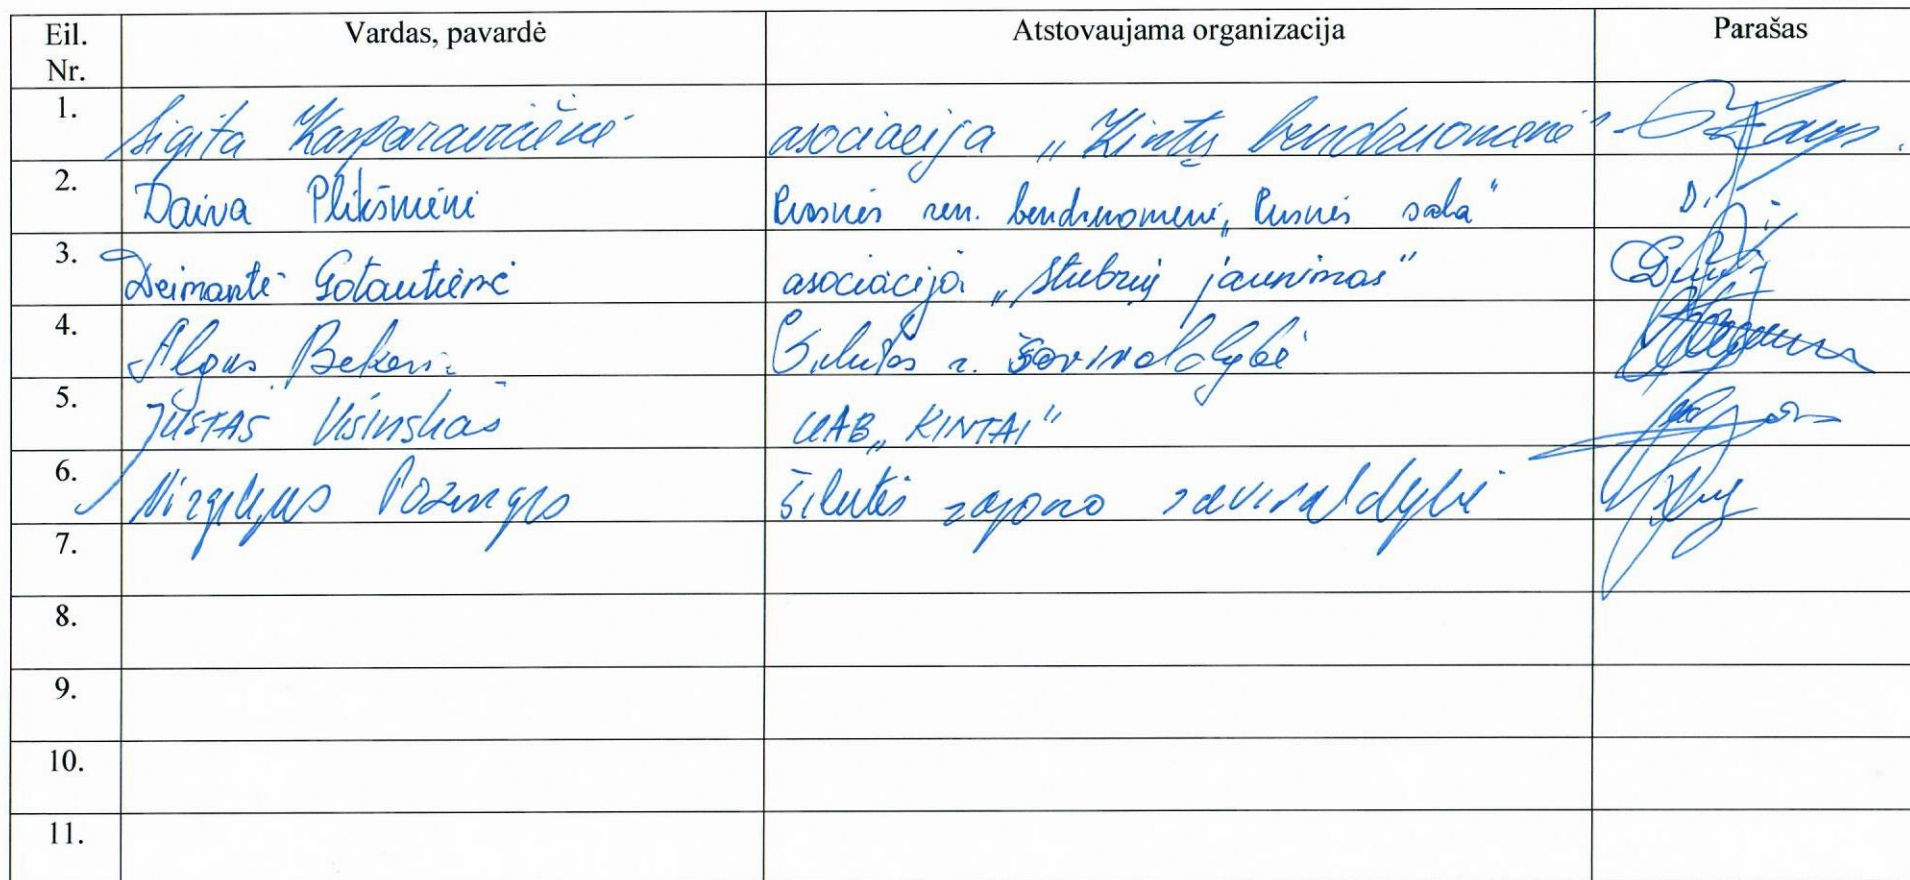 Eil. Nr. Vardas, pavardė Atstovaujama organizacija Parašas
1. Sigita Kasparavičienė asociacija „Kintų bendruomenė"
2. Daiva Plikšnienė Rusnės sen. bendruomenė „Rusnės sala"
3. Deimantė Gotautienė asociacija „Stubrių jaunimas"
4. Algis Bekeri Šilutės r. savivaldybė
5. JUSTAS Višinskas UAB „KINTAI"
6. Virgilijus Pozingis Šilutės rajono savivaldybė
7.
8.
9.
10.
11.